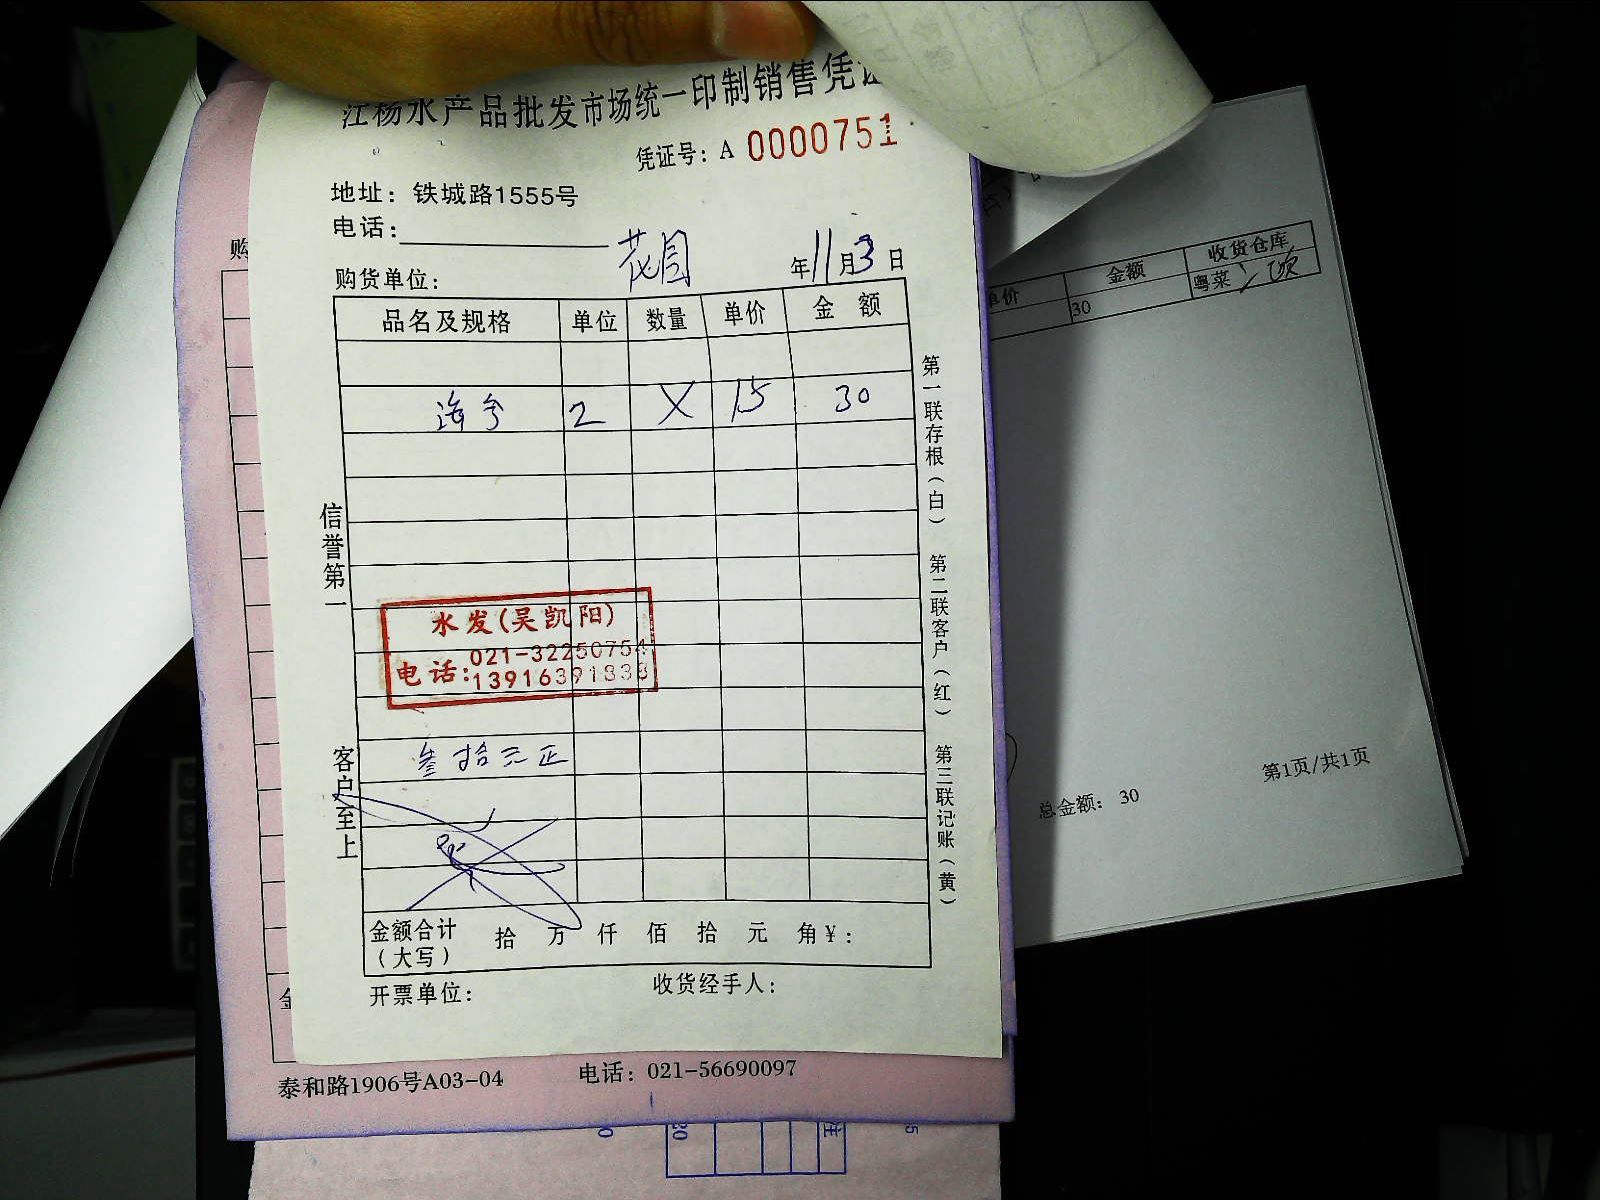 江杨水产品批发市场统一印制销售凭证
凭证号：A 0000751
地址：铁城路1555号
电话：
购货单位：花园 年11月3日
品名及规格 单位 数量 单价 金额
海兮 2 X 15 30
信誉第一
客户至上
水发(吴凯阳)
电话：021-32250754
13916391838
叁拾元正
金额合计（大写） 拾 万 仟 佰 拾 元 角 ¥：
开票单位： 收货经手人：
第一联存根（白） 第二联客户（红） 第三联记账（黄）
购
金
泰和路1906号A03-04 电话：021-56690097
单价 金额 收货仓库
30 粤菜
总金额：30
第1页/共1页
20
注